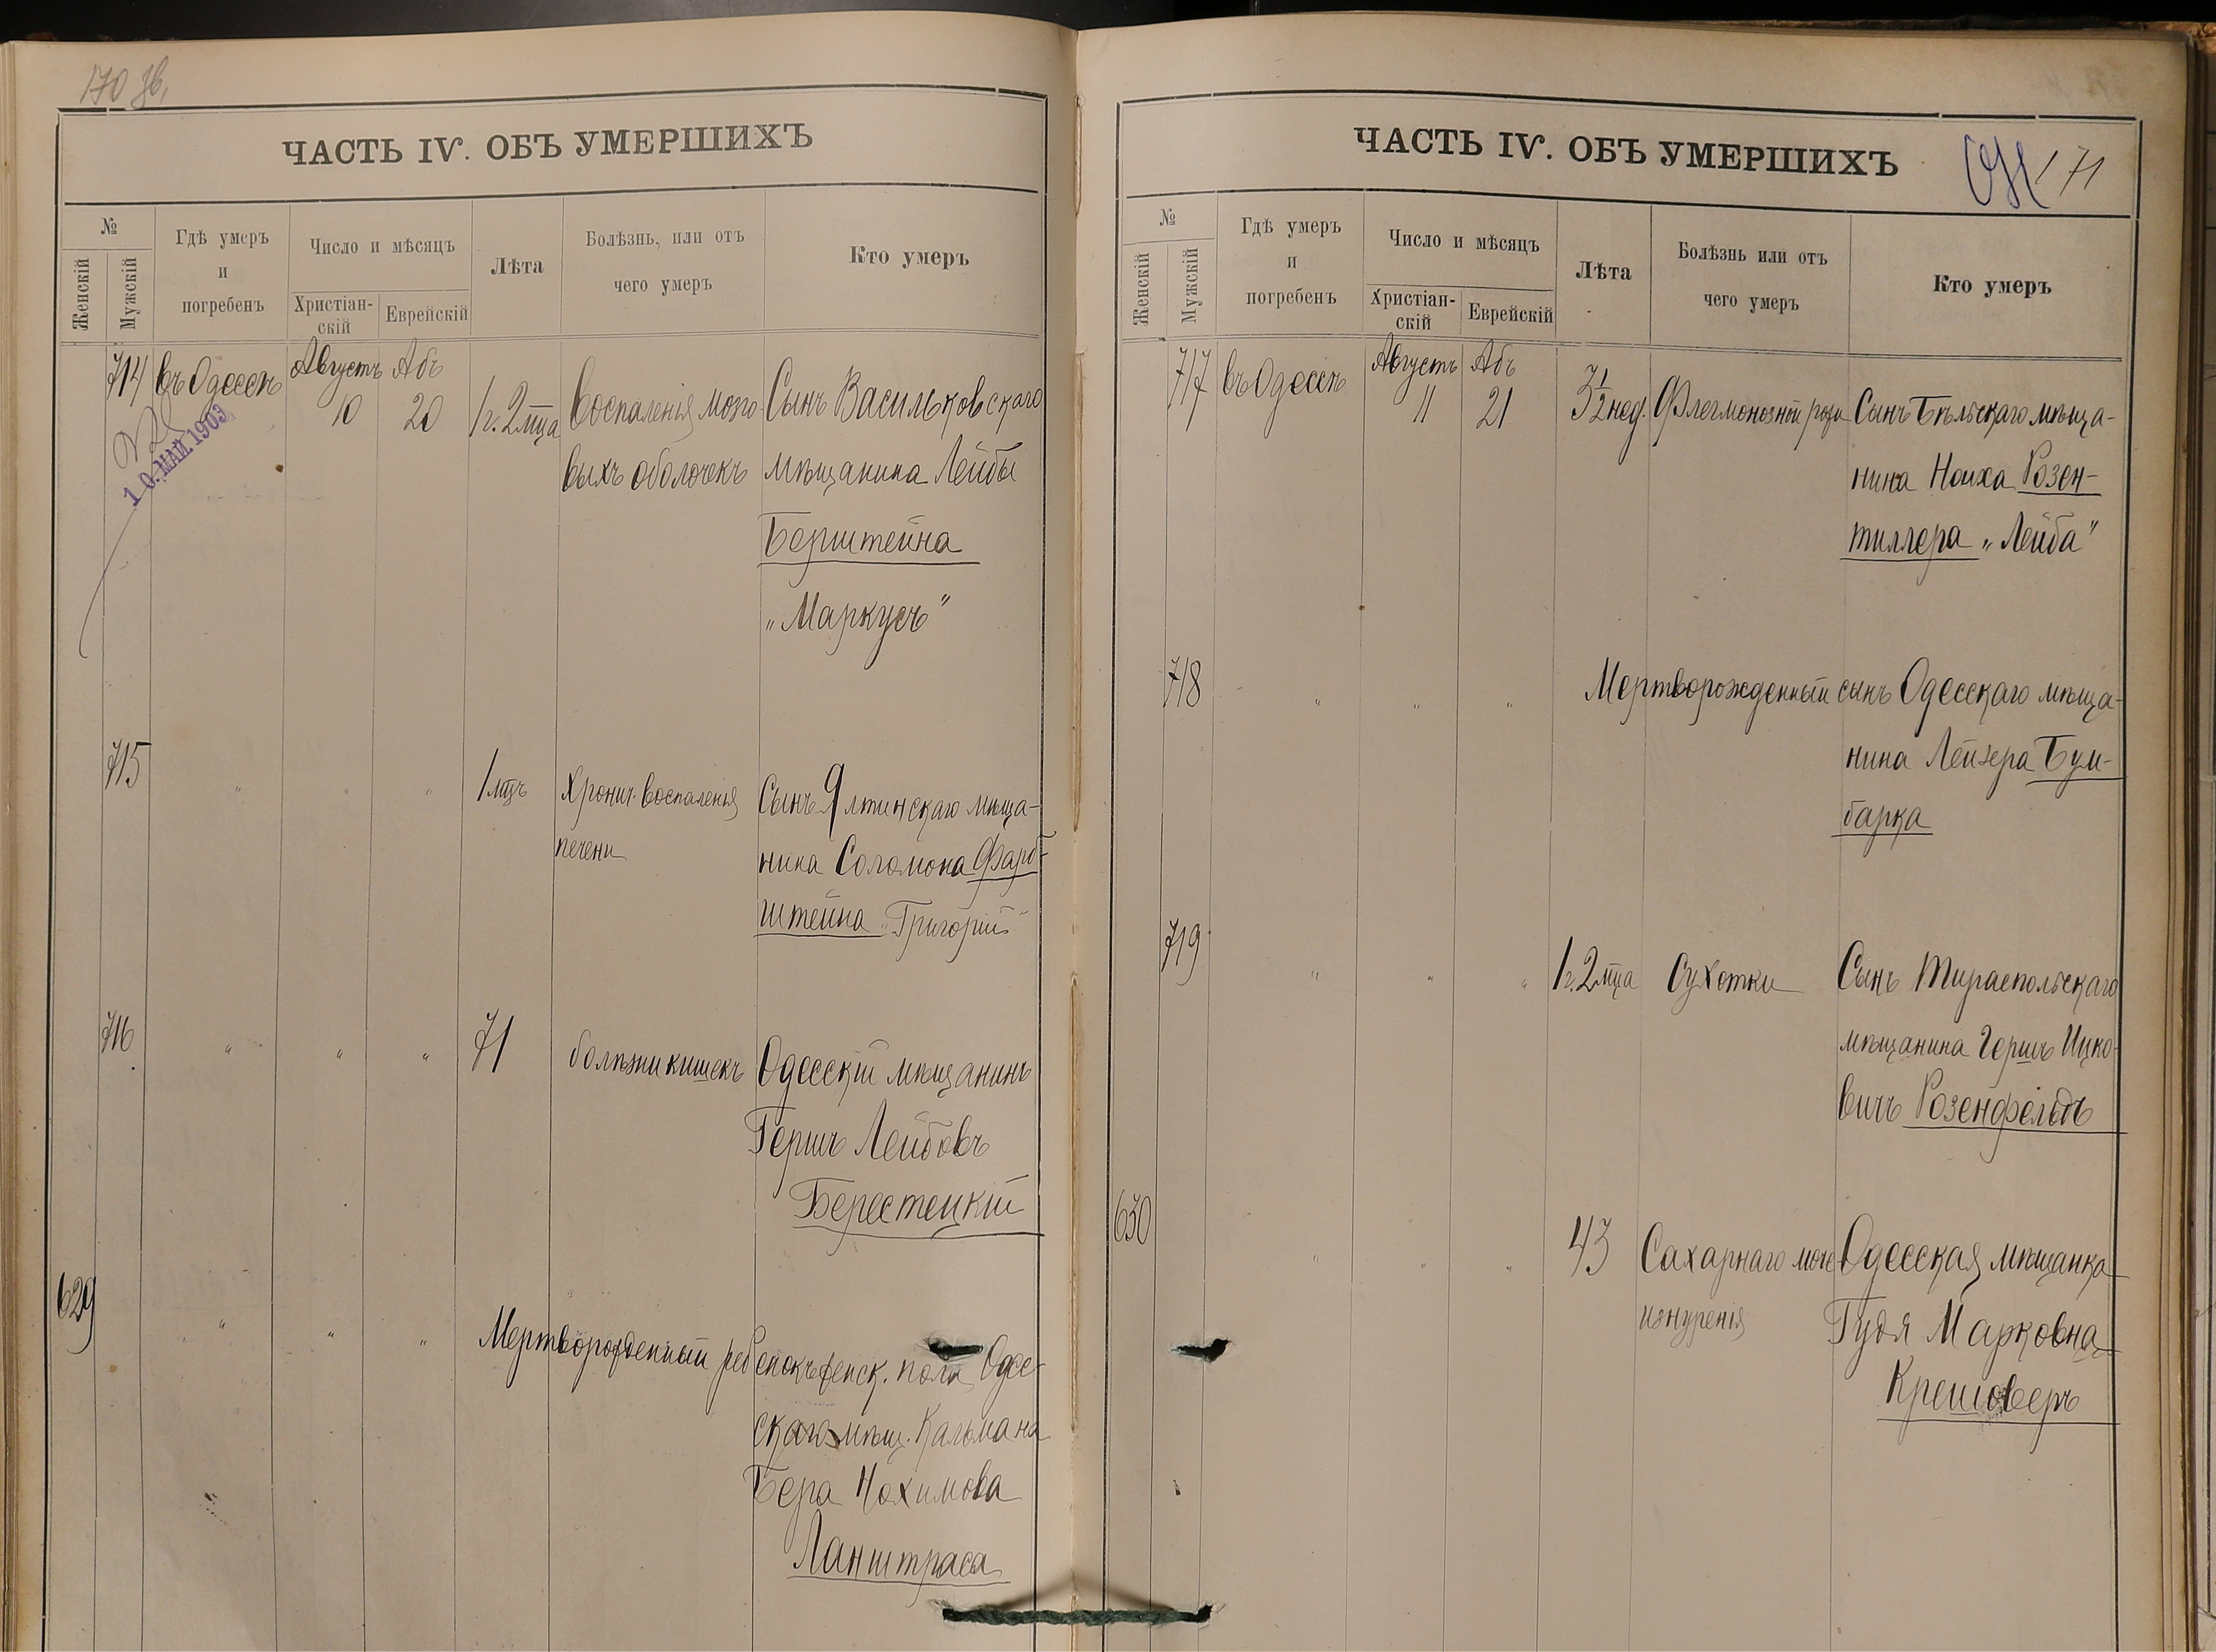 170 зв.
ЧАСТЬ IV. ОБЪ УМЕРШИХЪ
№
Женскій
Мужскій
Гдѣ умеръ
и
погребенъ
Число и мѣсяцъ
Христіан-
скій
Еврейскій
Лѣта
Болѣзнь, или отъ
чего умеръ
Кто умеръ
714 въ Одессѣ Августъ Абъ
10 20 1 г. 2 мца Воспаленія мозго Сынъ Васильковскаго
выхъ оболочекъ мѣщанина Лейбы
Берштейна
„Маркусъ"
10. МАЙ. 1903
715 " " " 1 мцъ Хронич. воспаленія Сынъ Ялтинскаго мѣща-
печени нина Соломона Фарб-
штейна „Григорій"
716 " " " 71 болѣзни кишекъ Одесскій мѣщанинъ
Гершъ Лейбовъ
Берестецкій
629 " " " Мертворожденный ребенокъ женск. пола Одес-
скаго мѣщ. Кальмана
Бера Нохимова
Ланштраса
ЧАСТЬ IV. ОБЪ УМЕРШИХЪ
171
№
Женскій
Мужскій
Гдѣ умеръ
и
погребенъ
Число и мѣсяцъ
Христіан-
скій
Еврейскій
Лѣта
Болѣзнь или отъ
чего умеръ
Кто умеръ
717 въ Одессѣ Августъ Абъ
11 21 3½ нед. Флегмонозной рожи Сынъ Бѣльскаго мѣща-
нина Ноиха Розен-
тиллера „Лейба"
718 " " " Мертворожденный сынъ Одесскаго мѣща-
нина Лейзера Бум-
барка
719 " " " 1 г. 2 мца Сухотки Сынъ Тираспольскаго
мѣщанина Гершъ Ицко-
вичъ Розенфельдъ
630 " " " 43 Сахарнаго моче Одесская мѣщанка
изнуренія Гудя Марковна
Крешоверъ